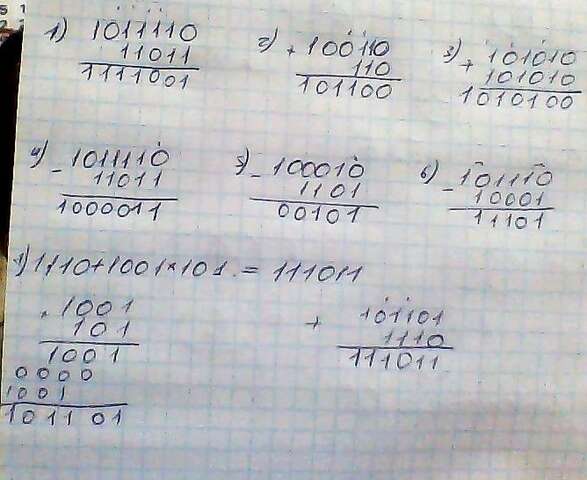 1) 1011110
11011
1111001
2) + 100110
110
101100
3) + 101010
101010
1010100
4) - 101110
11011
1000011
5) - 100010
1101
00101
6) - 101110
10001
11101
1110+1001×101 = 111011
× 1001
101
1001
0000
1001
101101
+ 101101
1110
111011